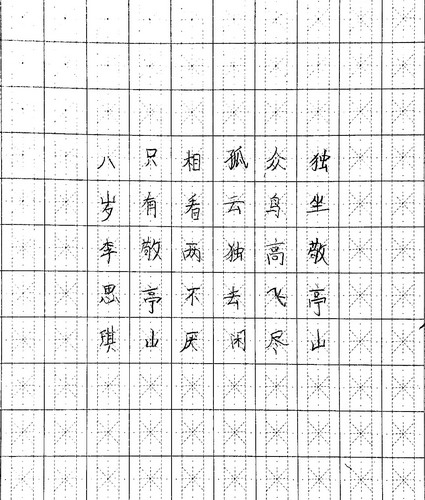 独坐敬亭山
众鸟高飞尽
孤云独去闲
相看两不厌
只有敬亭山
八岁李思琪